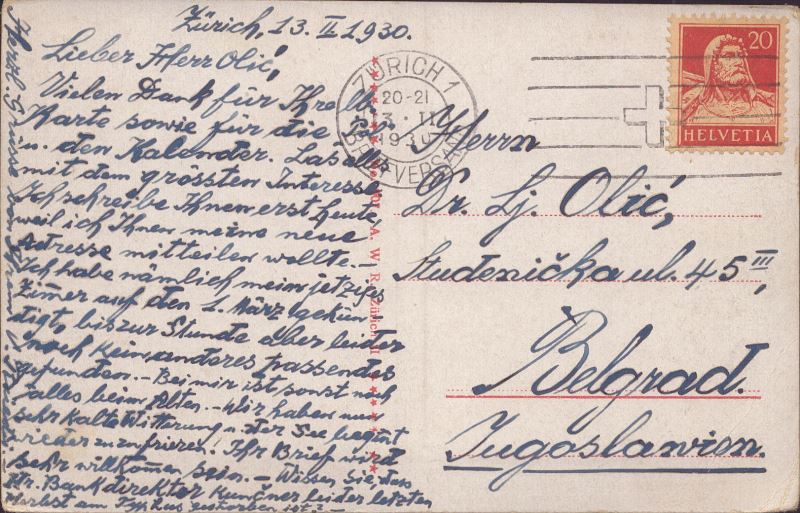 Zürich, 13. II. 1930.
Lieber Herr Olić,
Vielen Dank für Ihre lb.
Karte sowie für die
u. den Kalender. Las alles
mit dem grössten Interesse
Ich schreibe Ihnen erst heute,
weil ich Ihnen meine neue
Adresse mitteilen wollte.-
Ich habe nämlich mein jetziges
Zimer auf den 1. März gekün
digt, bis zur Stunde aber leider
noch kein anderes passendes
gefunden.- Bei mir ist sonst noch
alles beim Alten.- Wir haben nun
sehr kalte Witterung u. der See beginnt
wieder zuzufrieren. Ihr Brief wird
sehr willkommen sein.- Wissen Sie, dass
Hr. Bankdirektor leider letzten
Herbst am Typhus gestorben ist?-
Herzl. Grüsse von Ihrem
Herrn
Dr. Lj. Olić,
Studenička ul. 45 III,
Belgrad.
Jugoslawien.
ZÜRICH 1
20-21
13. II
1930
BRIEFVERSAND
20
HELVETIA
A. W. R. Zürich II